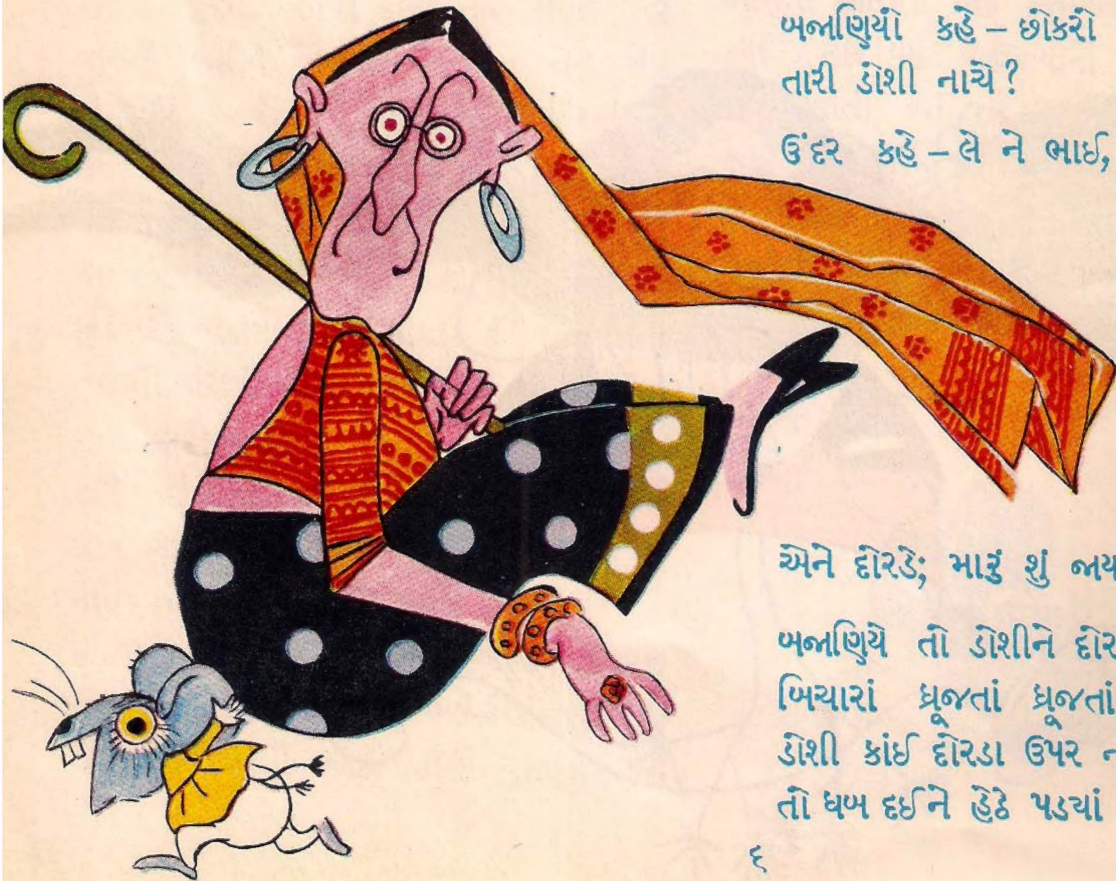 બજાણિયો કહે – છોકરી
તારી ડોશી નાચે?
ઉંદર કહે – લે ને ભાઈ,
એને દોરડે; મારું શું જાય
બજાણિયે તો ડોશીને દોર
બિચારાં ધ્રૂજતાં ધ્રૂજતાં
ડોશી કાંઈ દોરડા ઉપર
તો ધબ દઈને હેઠે પડયાં
૬